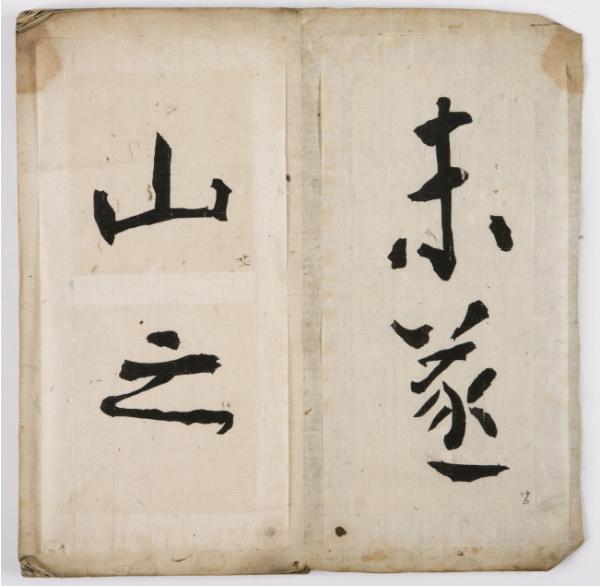 未遂
山之